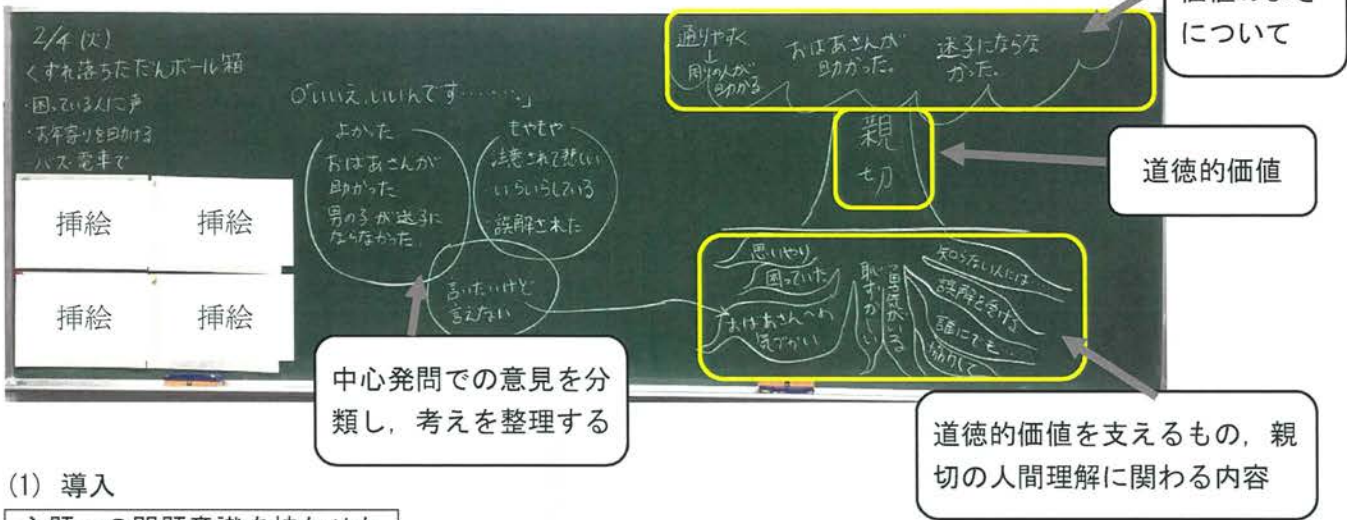 2/4 (火)
くずれ落ちただんボール箱
・困っている人に声
・お年寄りを助ける
・バス・電車で
挿絵
挿絵
挿絵
挿絵
○「いいえ、いいんです………。」
よかった
おばあさんが
助かった
男の子が迷子に
ならなかった。
もやもや
・注意されて悲しい
・いらいらしている
・誤解された
言いたいけど
言えない
通りやすく
↓
周りの人が
助かる
おばあさんが
助かった。
迷子にならな
かった。
親
切
思いやり
困っていた
おばあさんへの
気づかい
恥ずかしい
勇気がいる
知らない人には
誤解を受ける
誰にでも…
協力して
について
道徳的価値
中心発問での意見を分
類し，考えを整理する
道徳的価値を支えるもの，親
切の人間理解に関わる内容
(1) 導入